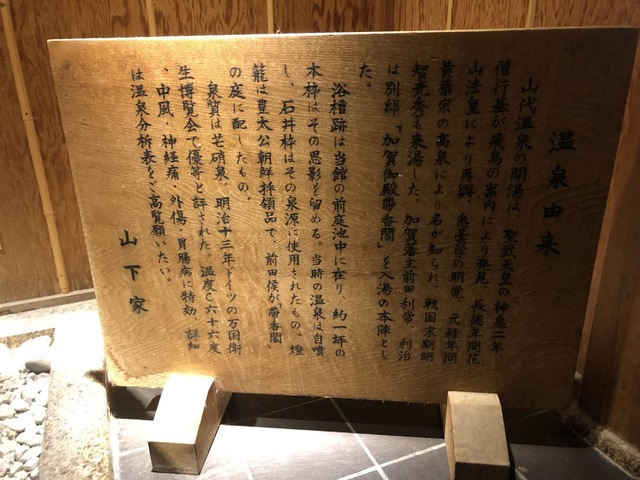 温泉由来
山代温泉の開湯は、聖武天皇の神亀二年、
僧行基が飛鳥の案内により発見、長徳年間花
山法皇により再興、無量寺の明覚、元禄年間
黄檗宗の高泉により名が知られ、戦国末期明
智光秀も来湯した。加賀藩主前田利常、利治
は別邸「加賀御殿帯香閣」を入湯の本陣とし
た。
浴槽跡は当館の前庭池中に在り、約一坪の
木枠はその思影を留める。当時の温泉は自噴
し、石井枠はその泉源に使用されたもの、燈
籠は豊太公朝鮮拝領品で、前田侯が「帯香閣」
の庭に配したもの。
泉質は芒硝泉。明治十三年ドイツの万国衛
生博覧会で優等と評された。温度C六十六度
、中風、神経痛、外傷、胃腸病に特効、詳細
は温泉分析表をご高覧願いたい。
山下家